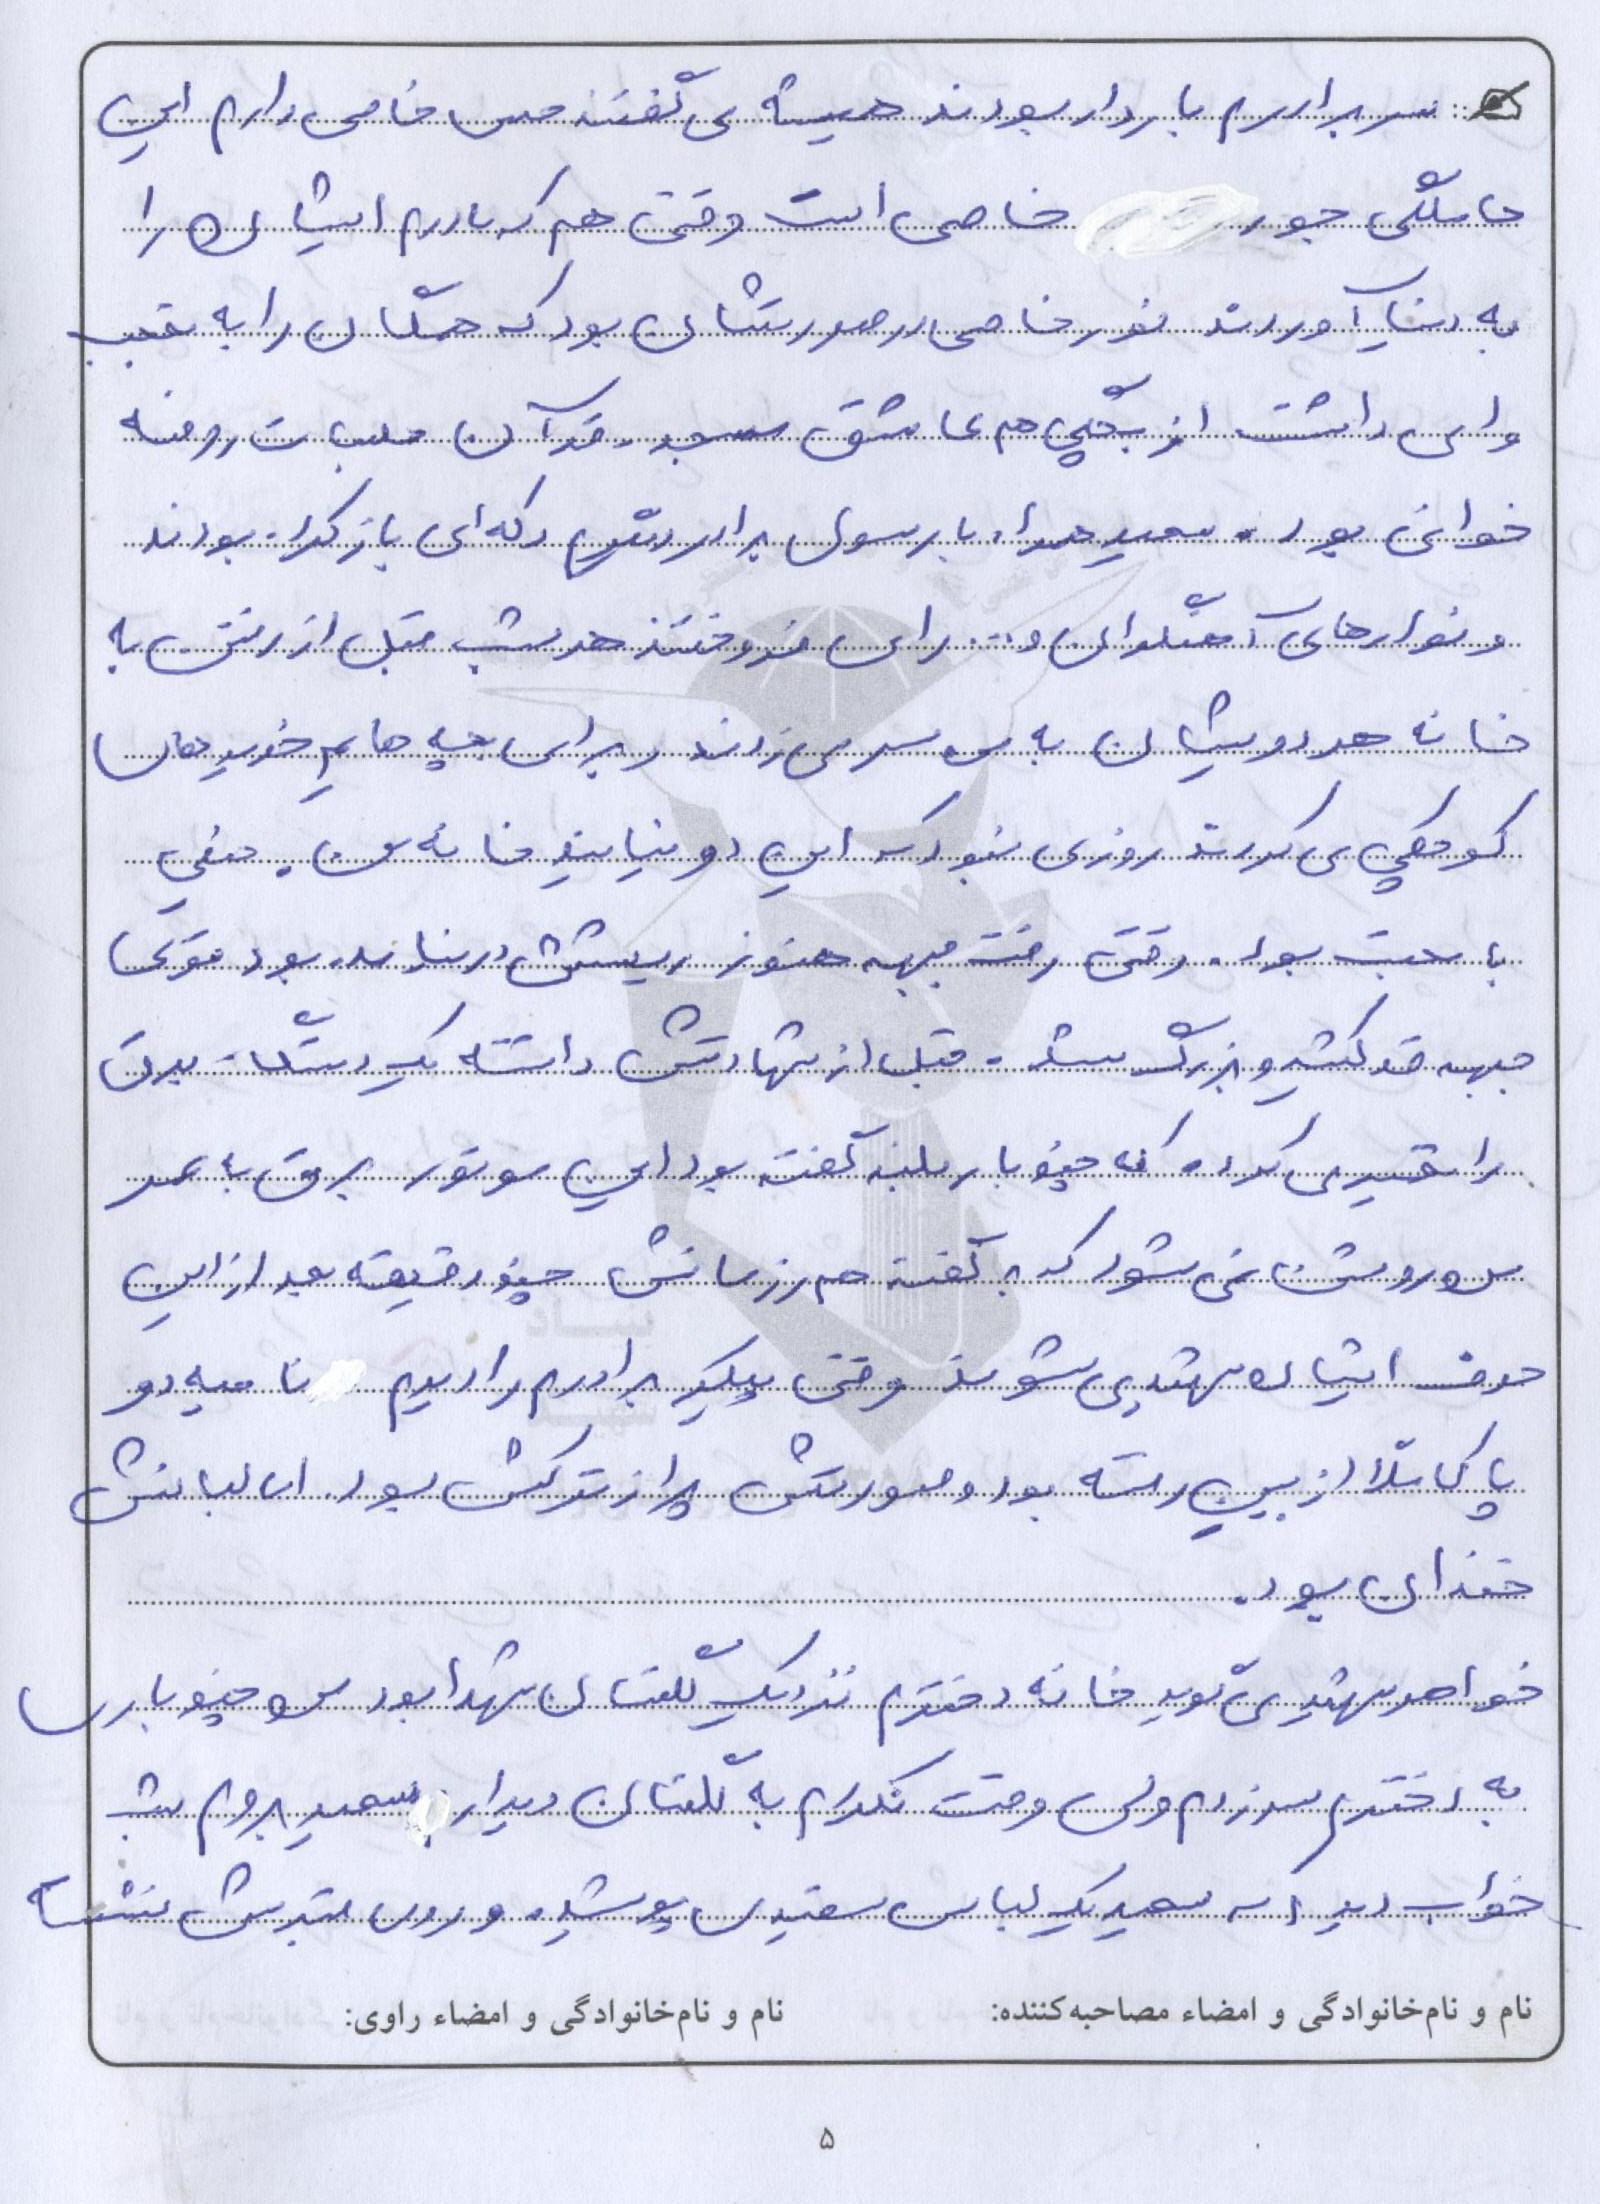 سر برادرم باردار بودند همیشه می گفتند حس خاصی دارم این
حاملگی جور خاصی است وقتی هم که مادرم ایشان را
به دنیا آوردند نور خاصی در صورتشان بود که همگان را به تعجب
وا می داشت از بچگی هم عاشق مسجد، قرآن جلسات روضه
خوانی بود. سعید همراه با رسول برادرش دکه ای باز کرده بودند
و نوارهای آهنگران و ... را می فروختند هر شب قبل از رفتن به
خانه هر دویشان به من سر می زدند و برای بچه هایم خریدهای
کوچکی می کردند روزی نبود که این دو نیایند خانه من. خیلی
با محبت بود. وقتی رفت جبهه هنوز ریشش در نیامده بود توی
جبهه قد کشید و بزرگ شد. قبل از شهادتش داشته یک دستگاه برق
را تعمیر می کرده که چند بار بلند گفته بود این موتور برق با عمر
من روشن نمی شود که به گفته هم رزمانش چند دقیقه بعد از این
حرف ایشان شهید می شوند وقتی پیکر برادرم را دیدم ناحیه دو
پا کاملا از بین رفته بود و صورتش پر از ترکش بود. اما لبانش
خندان بود.
خواهر شهید می گوید خانه دخترم نزدیک گلستان شهدا بود من چند باری
به دخترم سر زدم ولی وقت نکردم به گلستان دیدار سعید بروم شب
خواب دیدم که سعید یک لباس سفیدی پوشیده و روی قبرش نشسته
نام و نام‌خانوادگی و امضاء مصاحبه‌کننده: نام و نام‌خانوادگی و امضاء راوی:
۵